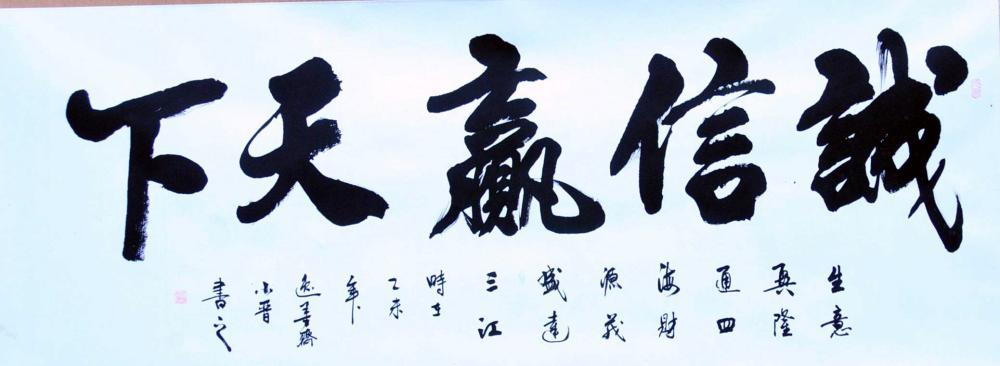 誠信贏天下
生意
興隆
通四
海財
源茂
盛達
三江
時在
乙未
年
小晋
書之